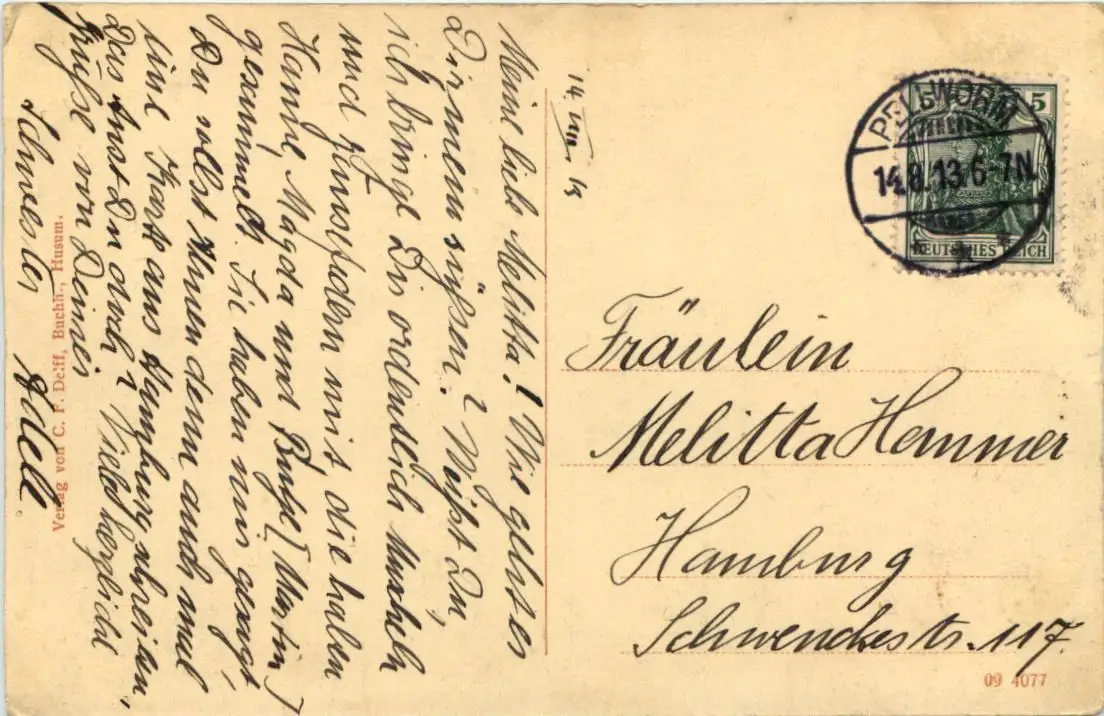 14. VIII. 13
Meine liebe Melitta! Wie geht es
Dir mein süßen? Weißt Du,
ich bringe Dir ordendlich Muscheln
und Gänsefedern mit, die haben
Hanne, Magda und Butze [Martin]
gesammelt. Sie haben nur gesagt,
Du sollst Ihnen denn auch mal
eine Karte aus Hamburg schreiben,
Das thust Du doch? Viele herzliche
Grüße von Deiner
Schwester Adele.
Verlag von C. F. Delff, Buchh., Husum.
PELLWORM
14.8.13.6-7N.
5
DEUTSCHES REICH
Fräulein
Melitta Hammer
Hamburg
Schwenckestr. 117.
09 4077